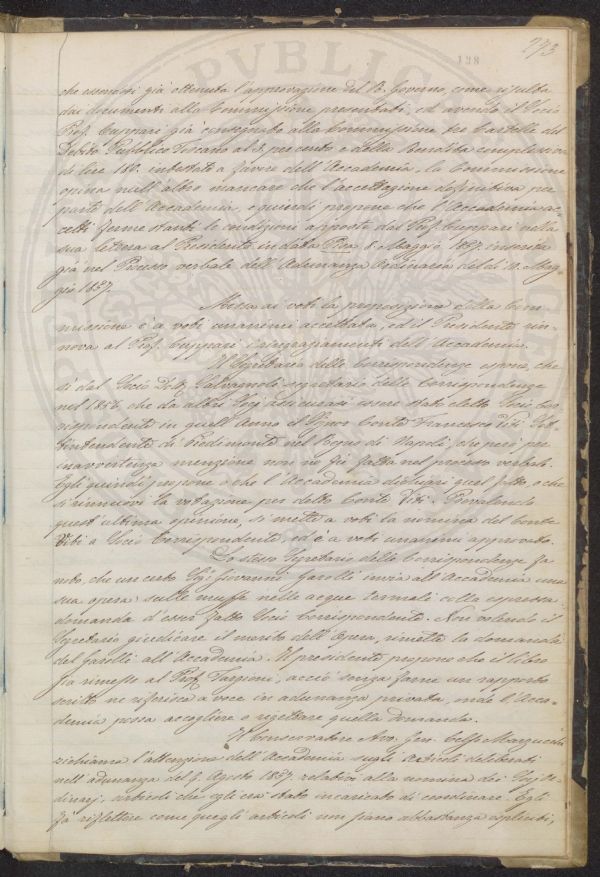 273
128
che essendosi già ottenuta l'approvazione del R. Governo, come risulta
dai documenti alla Commissione presentati, ed avendo il Socio
Prof. Cuppari già consegnato alla Commissione le Cartelle del
Debito Pubblico Toscano al 3. per cento e della Rendita complessiva
di Lire 180. intestate a favore dell'Accademia, la Commissione
opina null'altro mancare che l'accettazione definitiva per
parte dell'Accademia, e quindi propone che l'Accademia ac-
cetti ferme stanti le condizioni apposte dal Prof. Cuppari nella
sua lettera al Presidente in data Pisa 8. Maggio 1857. inserita
già nel Processo verbale dell'Adunanza Ordinaria del dì 10. Mag-
gio 1857.
Messa ai voti la proposizione della Com-
missione è a voti unanimi accettata, ed il Presidente rin-
nova al Prof. Cuppari i ringraziamenti dell'Accademia.
Il Segretario delle Corrispondenze espone, che
sì dal Socio Dott. Salvagnoli segretario delle Corrispondenze
nel 1856, che da altri Socj assicurasi essere stato eletto Socio Cor-
rispondente in quell'Anno il Signor Conte Francesco Viti Sot-
tintendente di Piedimonte nel Regno di Napoli, che però per
inavvertenza menzione non ne fu fatta nel processo verbale.
Egli quindi propone o che l'Accademia dichiari quel fatto, o che
si rinnuovi la votazione per detto Conte Viti. Prevalendo
quest'ultima opinione, si mette a voti la nomina del Conte
Viti a Socio Corrispondente, ed è a voti unanimi approvata.
Lo stesso Segretario delle Corrispondenze fa
noto, che un certo Sig. Giovanni Garelli invia all'Accademia una
sua opera sulle muffe nelle acque termali colla espressa
domanda d'esser fatto Socio Corrispondente. Non volendo il
Segretario giudicare il merito dell'Opera, rimette la domanda
del Garelli all'Accademia. Il presidente propone che il libro
sia rimesso al Prof. Targioni, acciò senza farne un rapporto
scritto ne riferisca a voce in adunanza privata, onde l'Acca-
demia possa accogliere o rigettare quella domanda.
Il Conservatore Avv. Gen. Celso Marzucchi
richiama l'attenzione dell'Accademia sugli articoli deliberati
nell'adunanza del 9. Agosto 1857. relativi alla nomina dei Socj Or-
dinarj, articoli che egli era stato incaricato di coordinare. Egli
fa riflettere come quegli articoli non siano abbastanza espliciti,